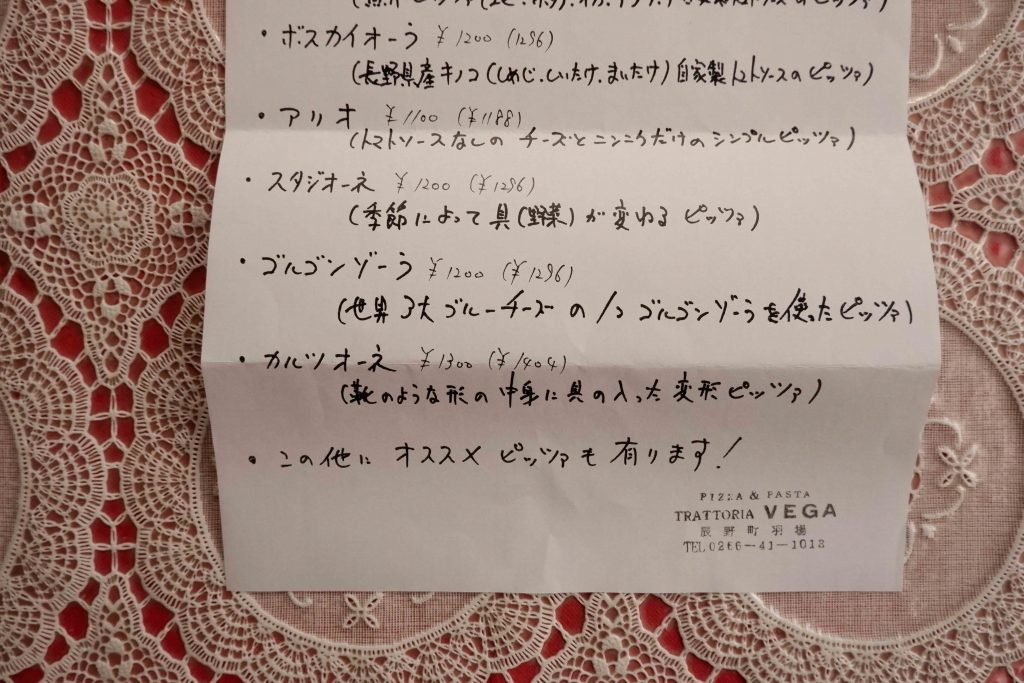 ピッツァ
・ボスカイオーラ ¥1200 (1296)
(長野県産キノコ(しめじ、しいたけ、まいたけ)自家製トマトソースのピッツァ)
・アリオ ¥1100 (¥1188)
(トマトソースなしの チーズとニンニクだけのシンプルピッツァ)
・スタジオーネ ¥1200 (¥1296)
(季節によって具(野菜)が変わるピッツァ)
・ゴルゴンゾーラ ¥1200 (¥1296)
(世界3大ブルーチーズの1つゴルゴンゾーラを使ったピッツァ)
・カルツオーネ ¥1300 (¥1404)
(靴のような形の中身に具の入った変形ピッツァ)
・この他にオススメピッツァも有ります!
PIZZA & PASTA
TRATTORIA VEGA
辰野町羽場
TEL 0266-41-1013